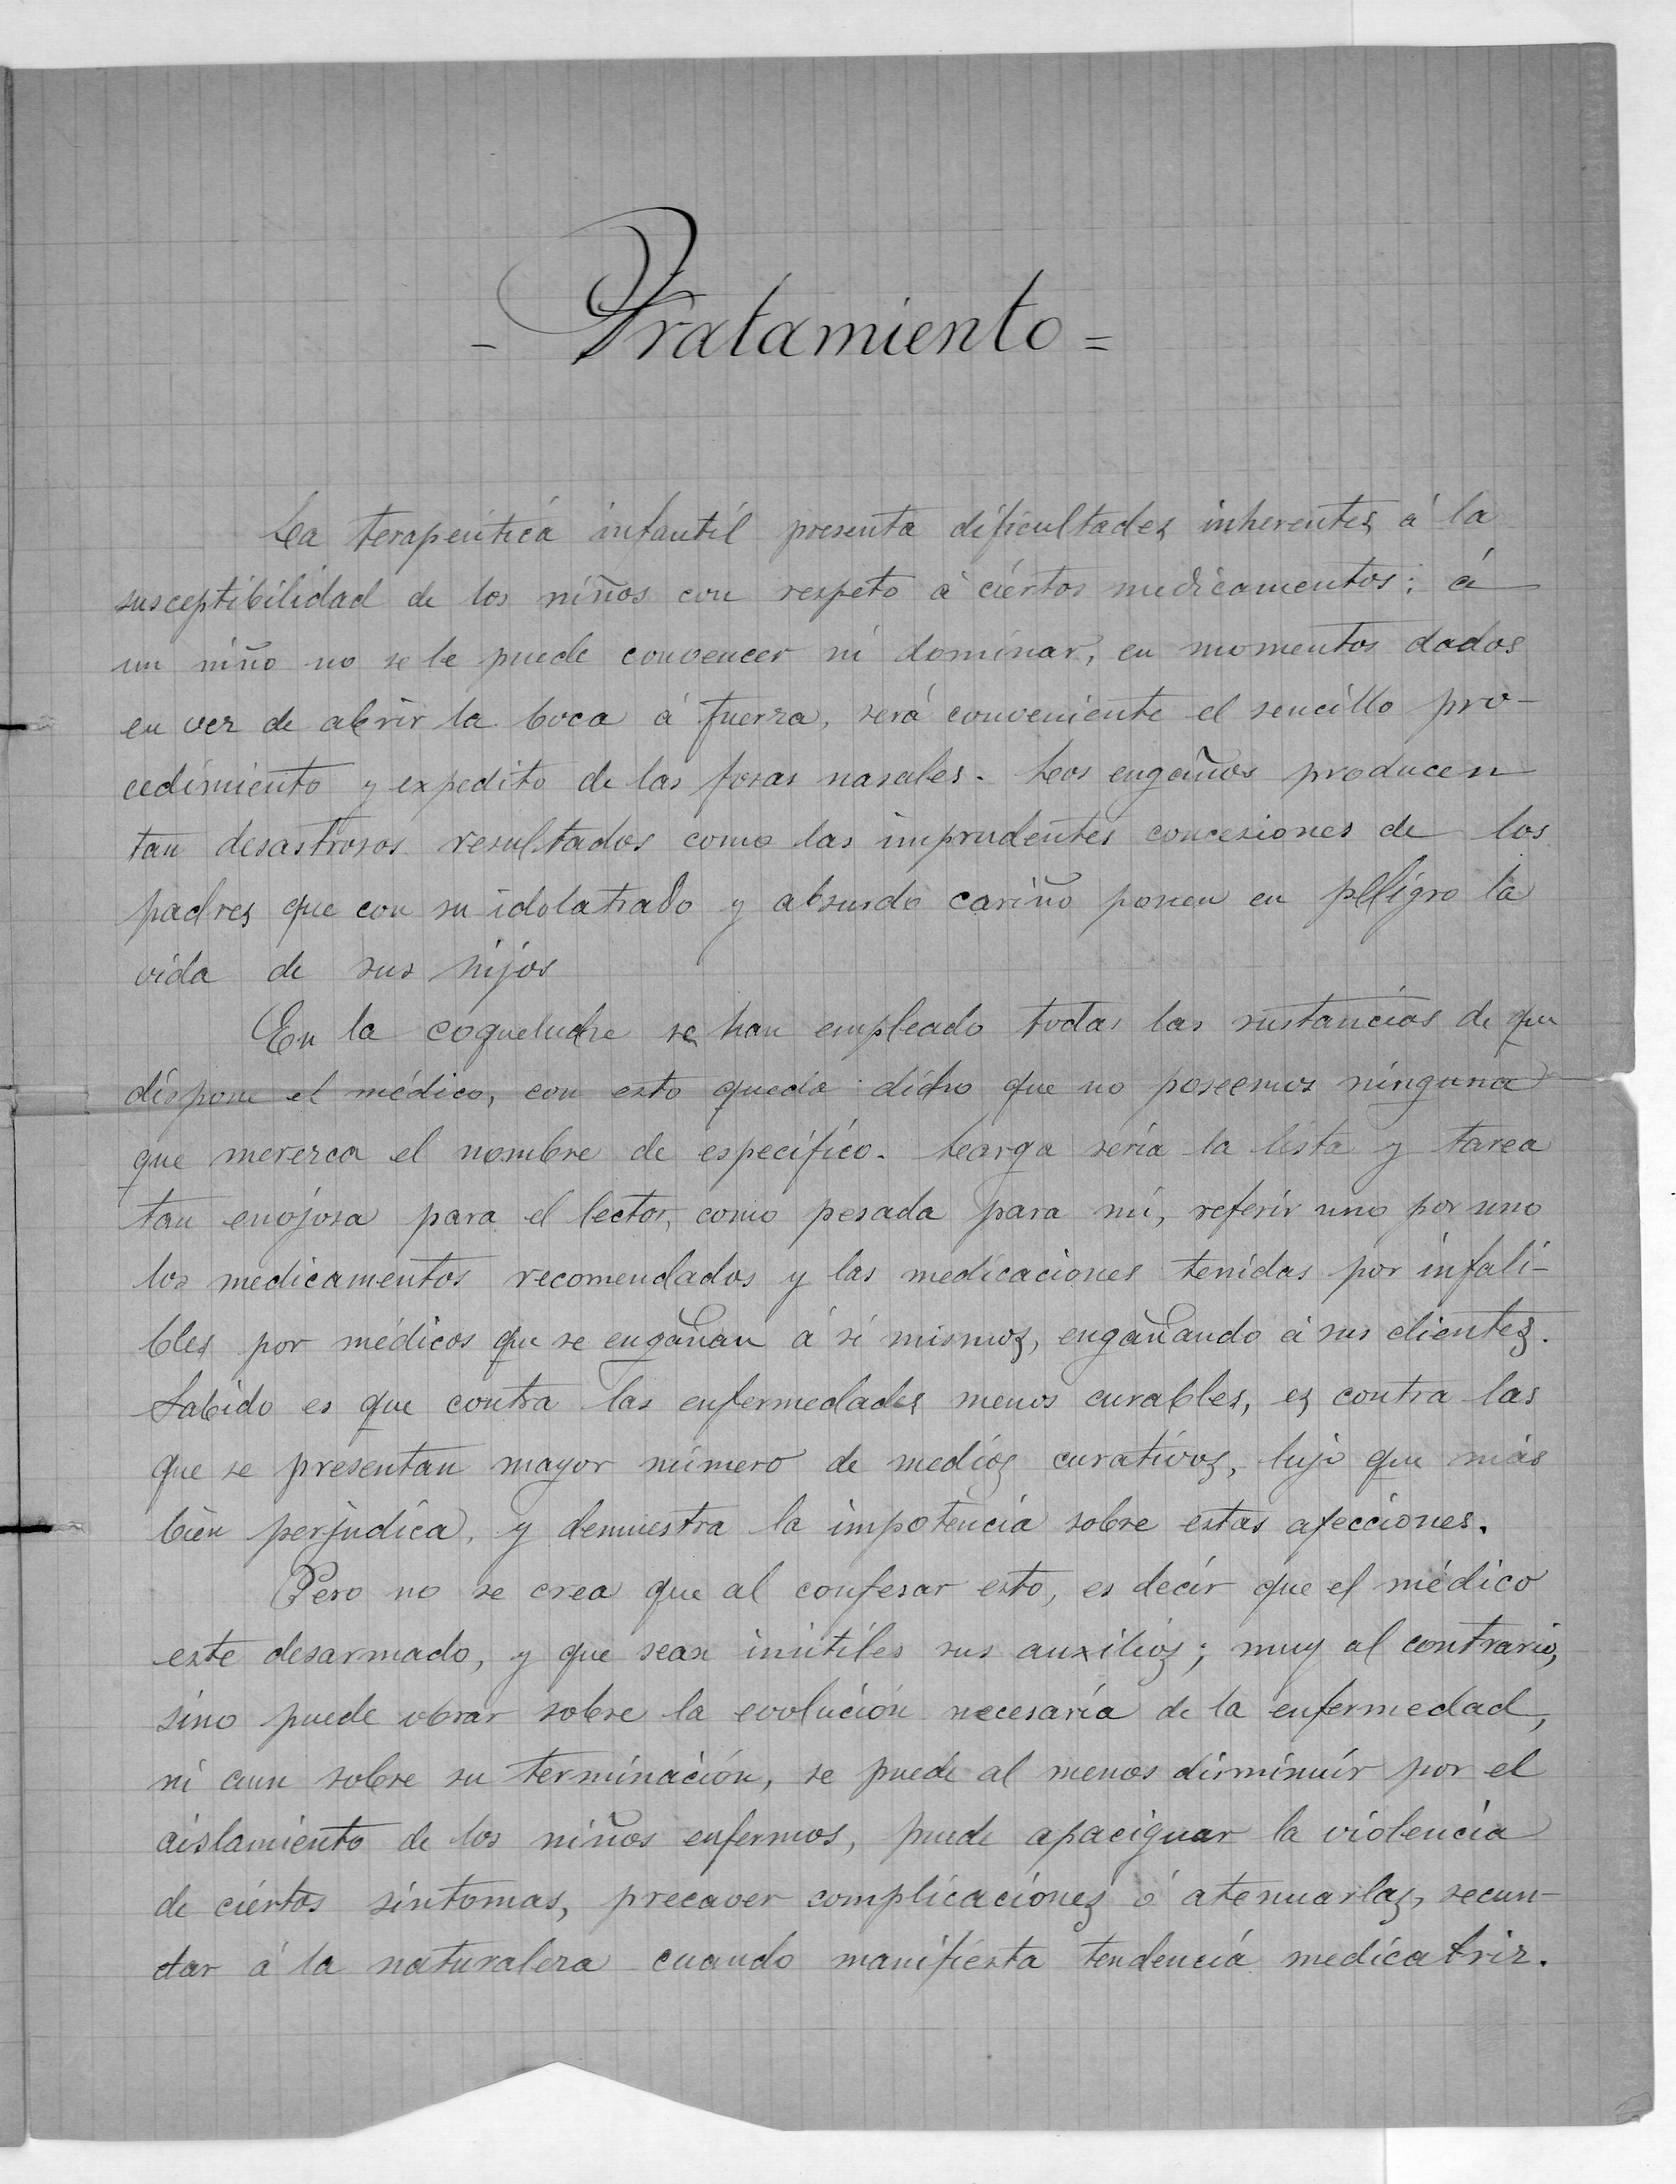 - Tratamiento =
La terapeútica infantíl presenta dificultades inherentes á la
susceptibilidad de los niños con respeto á ciértos medicamentos; á
un niño no se le puede convencer ni dominar, en momentos dados
en vez de abrír la boca á fuerza, será conveniente el sencíllo pro-
cedimiento y expedito de las fosas nasales. Los engaños producen
tan desastrosos resultados como las imprudentes concesiones de los
padres que con su idolatrado y absurdo cariño ponen en peligro la
vida de sus hijos
En la coqueluche se han empleado todas las sustancias de que
dispone el médico, con esto queda dicho que no poseemos ninguna
que merezca el nombre de específico. Larga sería la lista y tarea
tan enojosa para el lector, como pesada para mí, referír uno por uno
los medicamentos recomendados y las medicaciones tenidas por infali-
bles por médicos que se engañan á sí mismos, engañando á sus clientes.
Sabido es que contra las enfermedades menos curables, es contra las
que se presentan mayor número de medios curativos, lujo que más
bien perjudica, y demuestra la impotencia sobre estas afecciones.
Pero no se crea que al confesar esto, es decír que el médico
este desarmado, y que sean inútiles sus auxilios; muy al contrario,
sino puede obrar sobre la evolución necesaria de la enfermedad,
ni aun sobre su terminación, se puede al menos disminuír por el
aislamiento de los niños enfermos, puede apaciguar la violencia
de ciértos síntomas, precaver complicaciónes ó atenuarlas, secun-
dar á la naturaleza cuando manifiesta tendencia medicatriz.